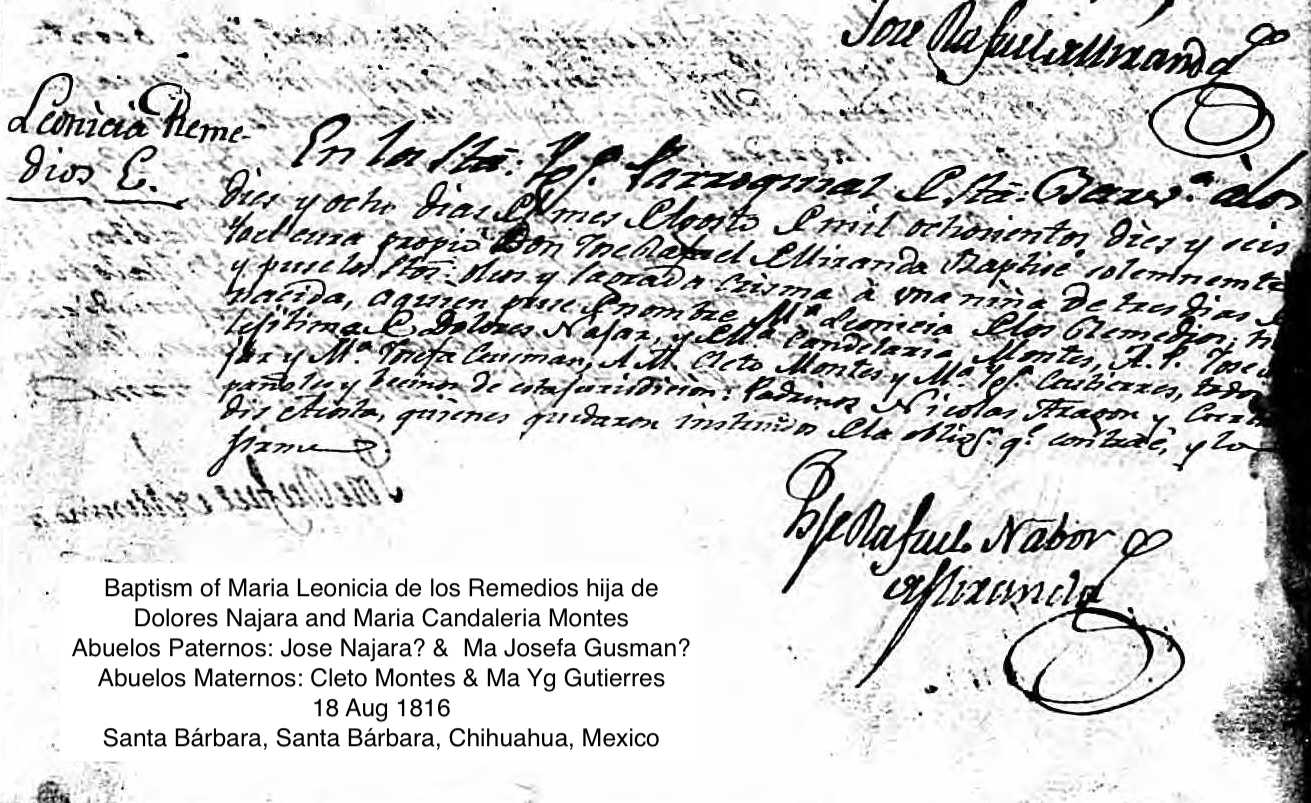 Jose Rafael Miranda
Leonicia Reme-
dios E.
En la Sta. Ygª. Parroquial de Sta. Barvª. à los
dies y ocho dias del mes de Agosto de mil ochosientos dies y seis
Yo el cura propio Don Jose Rafael de Miranda Baptisé solemnemte
y puse los Stos. oleos y sagrada Crisma à una niña de tres dias
nacida, a quien puse por nombre Mª. Leonicia de los Remedios;
lexitima de Dolores Najar, y Mª Candelaria Montes, A. P. Jose
y Mª. Josefa Gusman, A. M. Cleto Montes y Mª. Ygª. Gutierres, todos
pañoles y becinos de esta jurisdicion: Padrinos Nicolas Aragon y
Acosta, quienes quedaron instruidos de la obligⁿ. qᵉ. contraé, y lo
firme
Jose Rafael Nabor
de Miranda
Baptism of Maria Leonicia de los Remedios hija de
Dolores Najara and Maria Candaleria Montes
Abuelos Paternos: Jose Najara? & Ma Josefa Gusman?
Abuelos Maternos: Cleto Montes & Ma Yg Gutierres
18 Aug 1816
Santa Bárbara, Santa Bárbara, Chihuahua, Mexico